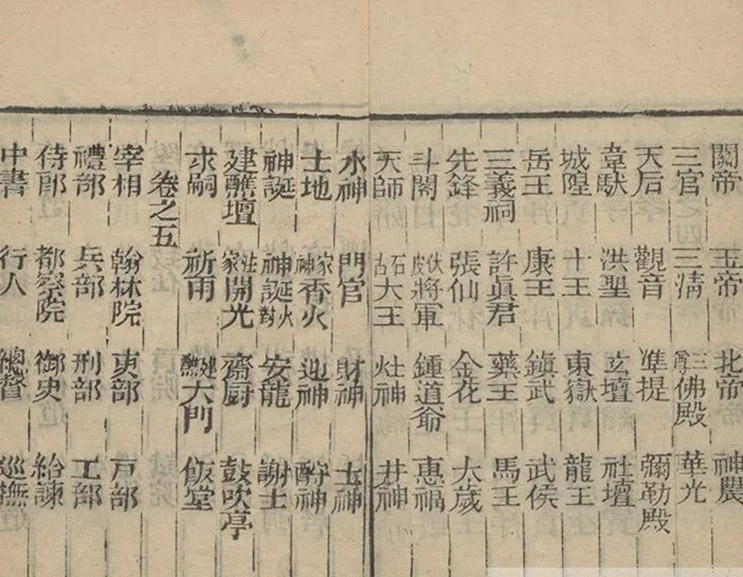 關帝 玉帝 北帝 神農
三官 三淸 三佛殿 華光
天后 觀音 準提 彌勒殿
韋馱 洪聖 玄壇 社壇
城隍 十王 東嶽 龍王
岳王 康王 鎮武 武侯
三義祠 許眞君 藥王 馬王
先鋒 張仙 金花 太歲
斗閣 伏波將軍 鍾道爺 惠福
天師 石古大王 灶神 井神
水神 門官 財神 土神
土地 家神香火 迎神 酧神
神誕 神誕火對 安龍 謝土
建醮壇 法家開光 齋厨 鼓吹亭
求嗣 祈雨 建醮大門 飯堂
卷之五
宰相 翰林院 吏部 戸部
禮部 兵部 刑部 工部
侍郎 都察院 御史 給諫
中書 行人 總督 巡撫